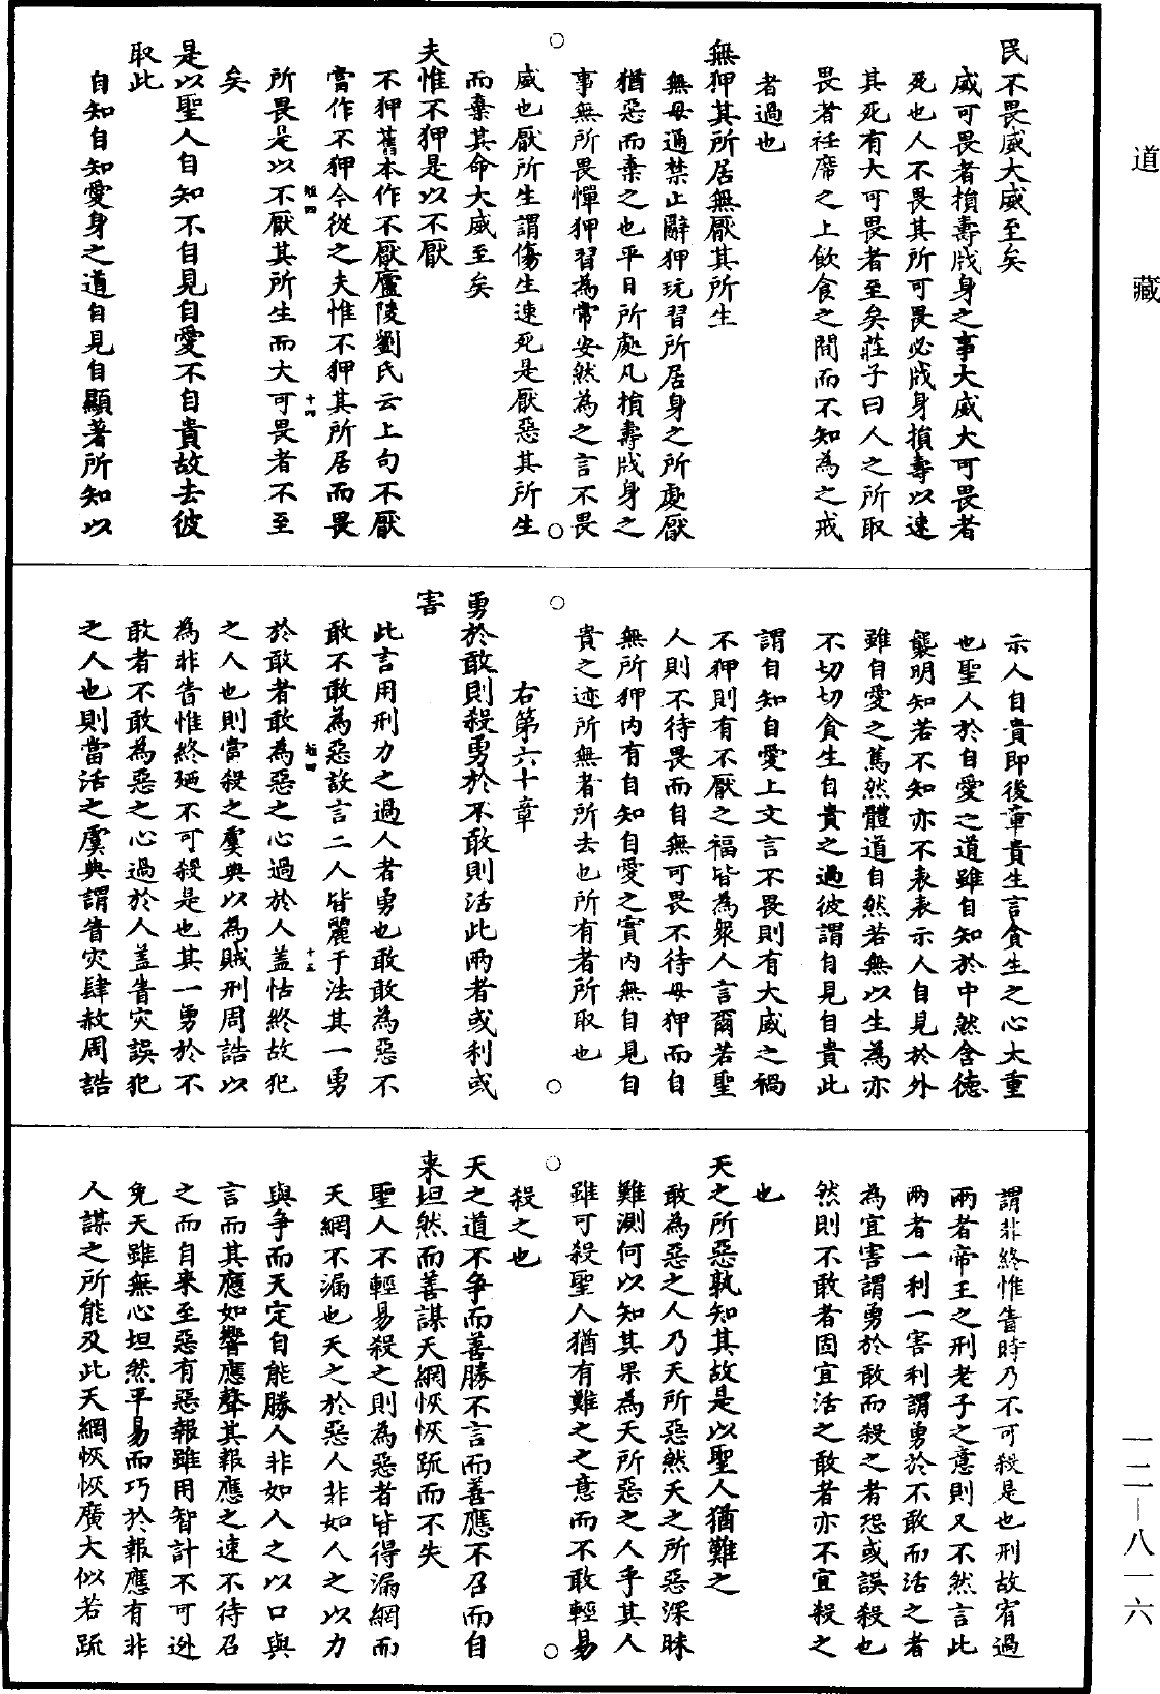 道藏
民不畏威大威至矣
威可畏者損壽戕身之事大威大可畏者
死也人不畏其所可畏必戕身損壽以速
其死有大可畏者至矣莊子曰人之所取
畏者衽席之上飲食之間而不知為之戒
者過也
無狎其所居無厭其所生
無毋通禁止辭狎玩習所居身之所處厭
猶惡而棄之也平日所處凡損壽戕身之
事無所畏憚狎習為常安然為之言不畏
威也厭所生謂傷生速死是厭惡其所生
而棄其命大威至矣
夫惟不狎是以不厭
不狎舊本作不厭廬陵劉氏云上句不厭
當作不狎今從之夫惟不狎其所居而畏
所畏是以不厭其所生而大可畏者不至
矣
是以聖人自知不自見自愛不自貴故去彼
取此
自知自知愛身之道自見自顯著所知以
示人自貴即後章貴生言貪生之心太重
也聖人於自愛之道雖自知於中然含德
襲明知若不知亦不表表示人自見於外
雖自愛之篤然體道自然若無以生為亦
不切切貪生自貴之過彼謂自見自貴此
謂自知自愛上文言不畏則有大威之禍
不狎則有不厭之福皆為衆人言爾若聖
人則不待畏而自無可畏不待毋狎而自
無所狎內有自知自愛之實內無自見自
貴之迹所無者所去也所有者所取也
右第六十章
勇於敢則殺勇於不敢則活此兩者或利或
害
此言用刑力之過人者勇也敢敢為惡不
敢不敢為惡設言二人皆麗于法其一勇
於敢者敢為惡之心過於人蓋怙終故犯
之人也則當殺之虞典以為賊刑周誥以
為非眚惟終廼不可殺是也其一勇於不
敢者不敢為惡之心過於人蓋眚灾誤犯
之人也則當活之虞典謂眚灾肆赦周誥
謂非終惟眚時乃不可殺是也刑故宥過
兩者帝王之刑老子之意則又不然言此
兩者一利一害利謂勇於不敢而活之者
為宜害謂勇於敢而殺之者恐或誤殺也
然則不敢者固宜活之敢者亦不宜殺之
也
天之所惡孰知其故是以聖人猶難之
敢為惡之人乃天所惡然天之所惡深昧
難測何以知其果為天所惡之人乎其人
雖可殺聖人猶有難之之意而不敢輕易
殺之也
天之道不争而善勝不言而善應不召而自
来坦然而善謀天網恢恢疏而不失
聖人不輕易殺之則為惡者皆得漏網而
天網不漏也天之於惡人非如人之以力
與争而天定自能勝人非如人之以口與
言而其應如響應聲其報應之速不待召
之而自来至惡有惡報雖用智計不可逊
免天雖無心坦然平易而巧於報應有非
人謀之所能及此天網恢恢廣大似若疏
一二—八一六